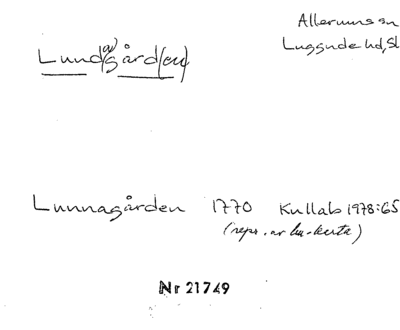 Allerums sn
Luggude hd, Sk
Lund(a)gård(en)
Lunnagården 1770 Kullab 1978:65
(repr. av lm-karta)
Nr 21749